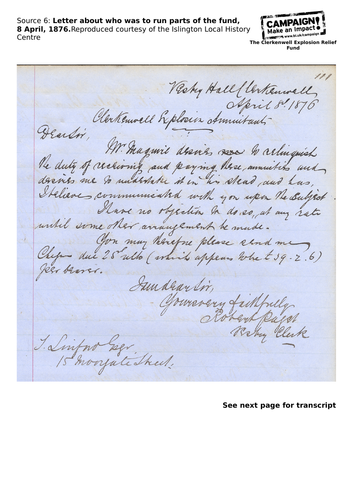 Source 6: Letter about who was to run parts of the fund,
8 April, 1876.Reproduced courtesy of the Islington Local History
Centre
CAMPAIGN!
Make an Impact
www.bl.uk/campaign
The Clerkenwell Explosion Relief
Fund
Vestry Hall Clerkenwell
April 8th 1876
Clerkenwell Explosion Annuitants
Dear Sir,
Mr. Maguire desires to relinquish
the duty of receiving and paying these annuities and
desires me to undertake it in his stead, and has,
I believe, communicated with you upon the subject.
I have no objection to do so, at any rate
until some other arrangement be made.
You may therefore please send me
Cheque due 25 ulto (which appears to be £39-2.6)
per bearer.
I am dear Sir,
Yours very faithfully
Robert Paget
Vestry Clerk
T. Linford Esqr
15 Moorgate Street,
See next page for transcript